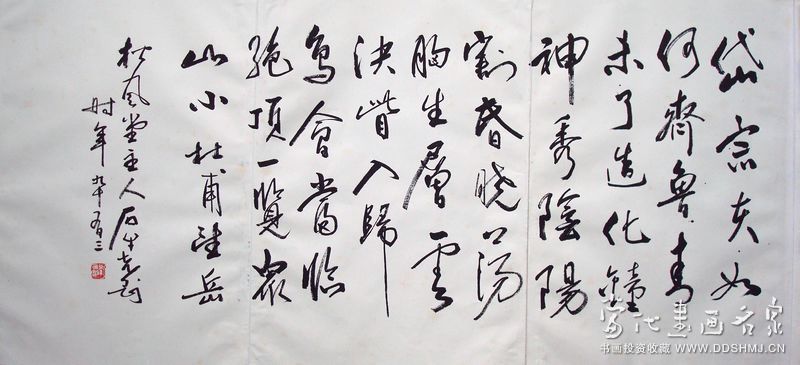 岱宗夫如
何齊魯青
未了造化鐘
神秀陰陽
割昏曉蕩
胸生層雲
決眥入歸
鳥會當臨
絶頂一覽衆
山小杜甫望岳
松風堂主人
时年九十
當代書画名家
书画投资收藏 WWW.DDSHMJ.CN